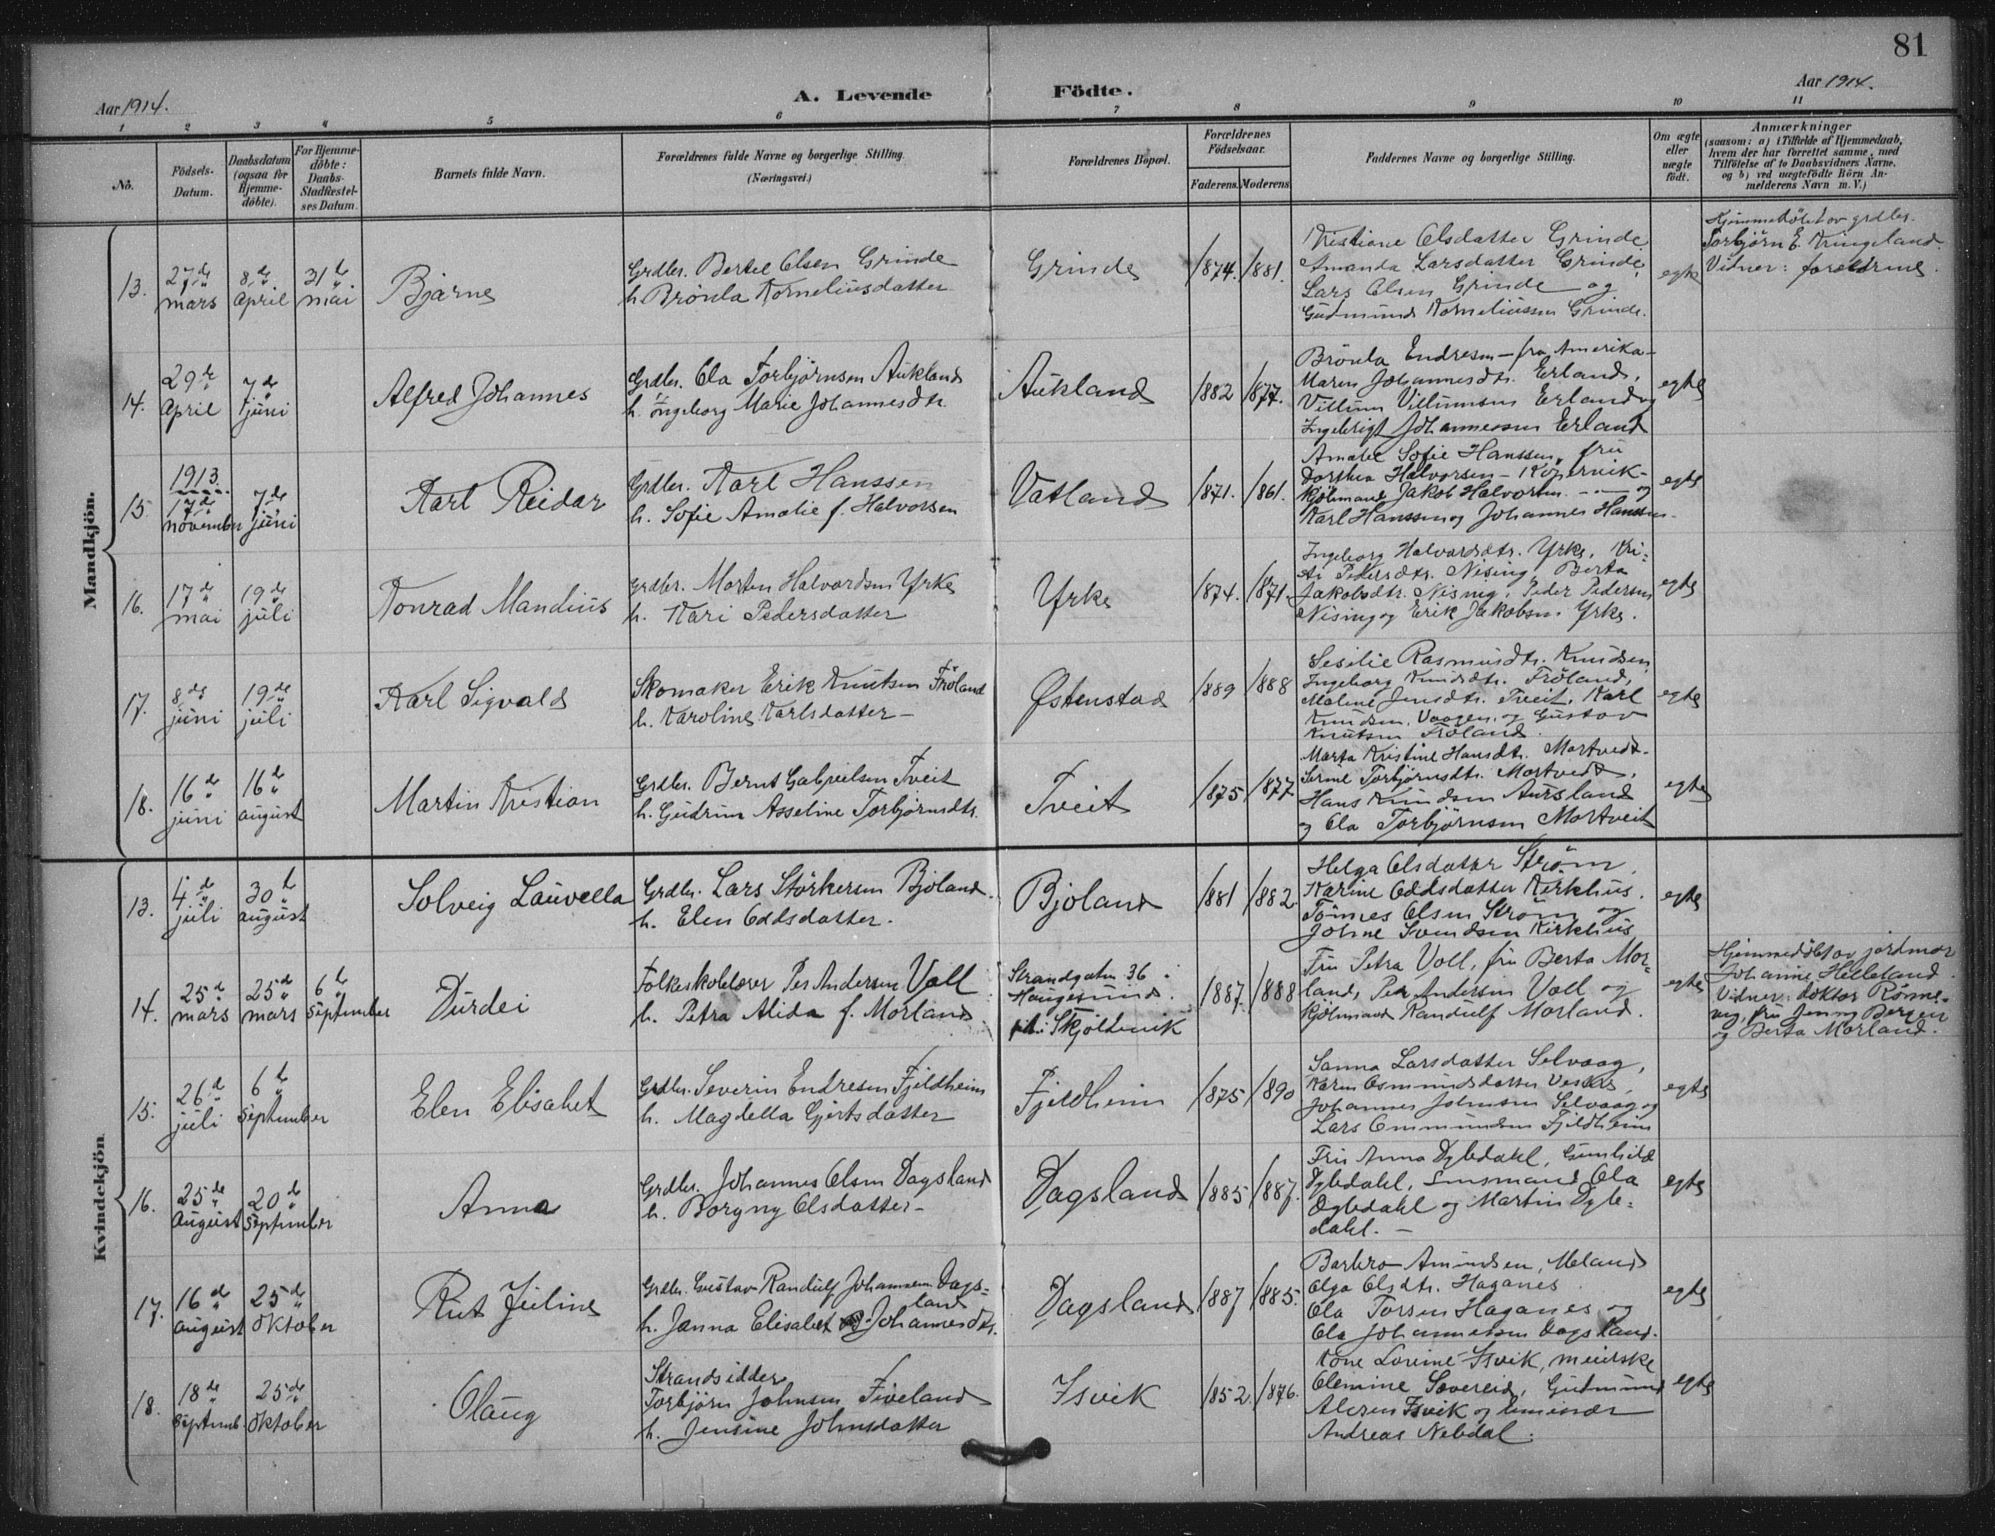 81
Aar 1914.
A. Levende Födte.
Aar 1914.
1 2 3 4 5 6 7 8 9 10 11
No.
Födsels-Datum.
Daabsdatum (ogsaa for Hjemme-döbte).
For Hjemme-döbte: Daabs-Stadfæstel-ses Datum.
Barnets fulde Navn.
Forældrenes fulde Navne og borgerlige Stilling. (Næringsvei.)
Forældrenes Bopæl.
Forældrenes Födselsaar.
Faderens. Moderens.
Faddernes Navne og borgerlige Stilling.
Om ægte eller uægte födt.
Anmærkninger
(saasom: a) i Tilfælde af Hjemmedaab,
hvem der har forrettet samme, med
Tilföielse af to Daabsvidners Navne.
og b) ved uægtefödte Börn An-
melderens Navn m. V.)
Mandkjön.
13. 27de mars 8de april 31te mai Bjarne
Grdbr. Bertel Olsen Grinde
h. Brönla Korneliusdatter
Grinde 1874. 1881.
Kristiane Olsdatter Grinde
Amanda Larsdatter Grinde,
Lars Olsen Grinde og
Gudmund Korneliussen Grinde.
egte
Hjemmedöbt av grdbr.
Torbjörn E. Kringeland.
Vidner: foreldrene.
14. 29de april 7de juni Alfred Johannes
Grdbr. Ola Torbjörnsen Aukland
h. Ingeborg Marie Johannesdtr.
Aukland 1882 1877.
Brönla Endresen - fra Amerika -
Maren Johannesdtr. Erland,
Villum Villumsen Erland og
Ingebrigt Johannessen Erland
egte
15. 1913. 17de november 7de juni Karl Reidar
Grdbr. Karl Hanssen
h. Sofie Amalie f. Halvorsen
Vatland 1871. 1861.
Amalie Sofie Hanssen, fru
Dorthea Halvorsen - Kopervik -
kjöbmand Jakob Halvorsen - og
Karl Hanssen og Johannes Hanssen.
egte
16. 17de mai 19de juli Konrad Mandius
Grdbr. Morten Halvardsen Yrke
h. Kari Pedersdatter
Yrke 1874. 1871.
Ingeborg Halvardsdtr. Yrke, Kri-
Pedersdtr. Nising, Berta
Jakobsdtr. Nising, Peder Pedersen
Nising og Erik Jakobsen Yrke.
egte
17. 8de juni 19de juli Karl Sigvald
Skomaker Erik Knutsen Fröland
h. Karoline Karlsdatter -
Østenstad 1889 1888
Sesilie Rasmusdtr. Knudsen,
Ingeborg Knudsdtr. Fröland,
Malene Jensdtr. Tveit, Karl
Knudsen Vaagen og Gustav
Knutsen Fröland.
egte
18. 16de juni 16de august Martin Kristian
Grdbr. Bernt Gabrielsen Tveit
h. Gudrun Asseline Torbjörnsdtr.
Tveit 1875 1877
Marta Kristine Hansdtr. Mortvedt.
Serine Torbjörnsdtr. Mortvedt,
Hans Knudsen Aursland
og Ola Torbjörnsen Mortveit
egte
Kvindekjön.
13. 4de juli 30te august Solveig Lauvella
Grdbr. Lars Störkersen Bjoland.
h. Elen Oddsdatter.
Bjoland 1881 1882.
Helga Olsdatter Ström,
Karine Oddsdatter Kirkhus.
Tönnes Olsen Ström og
Johne Svendsen Kirkhus
egte
14. 25de mars 25de mars 6te september Durdei
Folkeskolelærer Per Andersen Voll
h. Petra Alida f. Morland
Strandgaten 36 i
Haugesund.
Skjoldevik
1887. 1888
Fru Petra Voll, fru Berta Mor-
land, Per Andersen Voll og
kjöbmand Randulf Morland.
egte
Hjemmedöbt av jordmor
Johanne Helleland.
Vidner: doktor Rönne-
vig, fru Jenny Bergen
og Berta Morland.
15. 26de juli 6te september Elen Elisabet
Grdbr. Severin Endresen Fjeldheim
h. Magdella Gjertsdatter
Fjeldheim 1875 1890
Sanna Larsdatter Selvaag,
Karen Osmundsdatter
Johannes Johnsen Selvaag og
Lars Ommundsen Fjeldheim
egte
16. 25de august 20de september Anna
Grdbr. Johannes Olsen Dagsland
h. Borgny Olsdatter -
Dagsland 1885 1887.
Fru Anna Dybdahl, Gunhild
Dybdahl, Lensmand Ola
Dybdahl og Martin Dyb-
dahl. -
egte
17. 16de august 25de oktober Rut Juline
Grdbr. Gustav Randulf Johannesen Dags-
land
h. Janna Elisabet Johannesdtr.
Dagsland 1887 1885.
Barbro Amundsen, Meland
Olga Olsdtr. Haganes
Ola Torsen Haganes og
Ola Johannesen Dagsland.
egte
18. 18de septemb. 25de oktober Olaug
Strandsidder
Torbjörn Johnsen Fiveland
h. Jensine Johnsdatter
Isvik 1852. 1876.
Kone Lovine Isvik, meierske
Olemine Sævereid, Gudmund
Alersen Isvik og
Andreas Nebdal.
egte